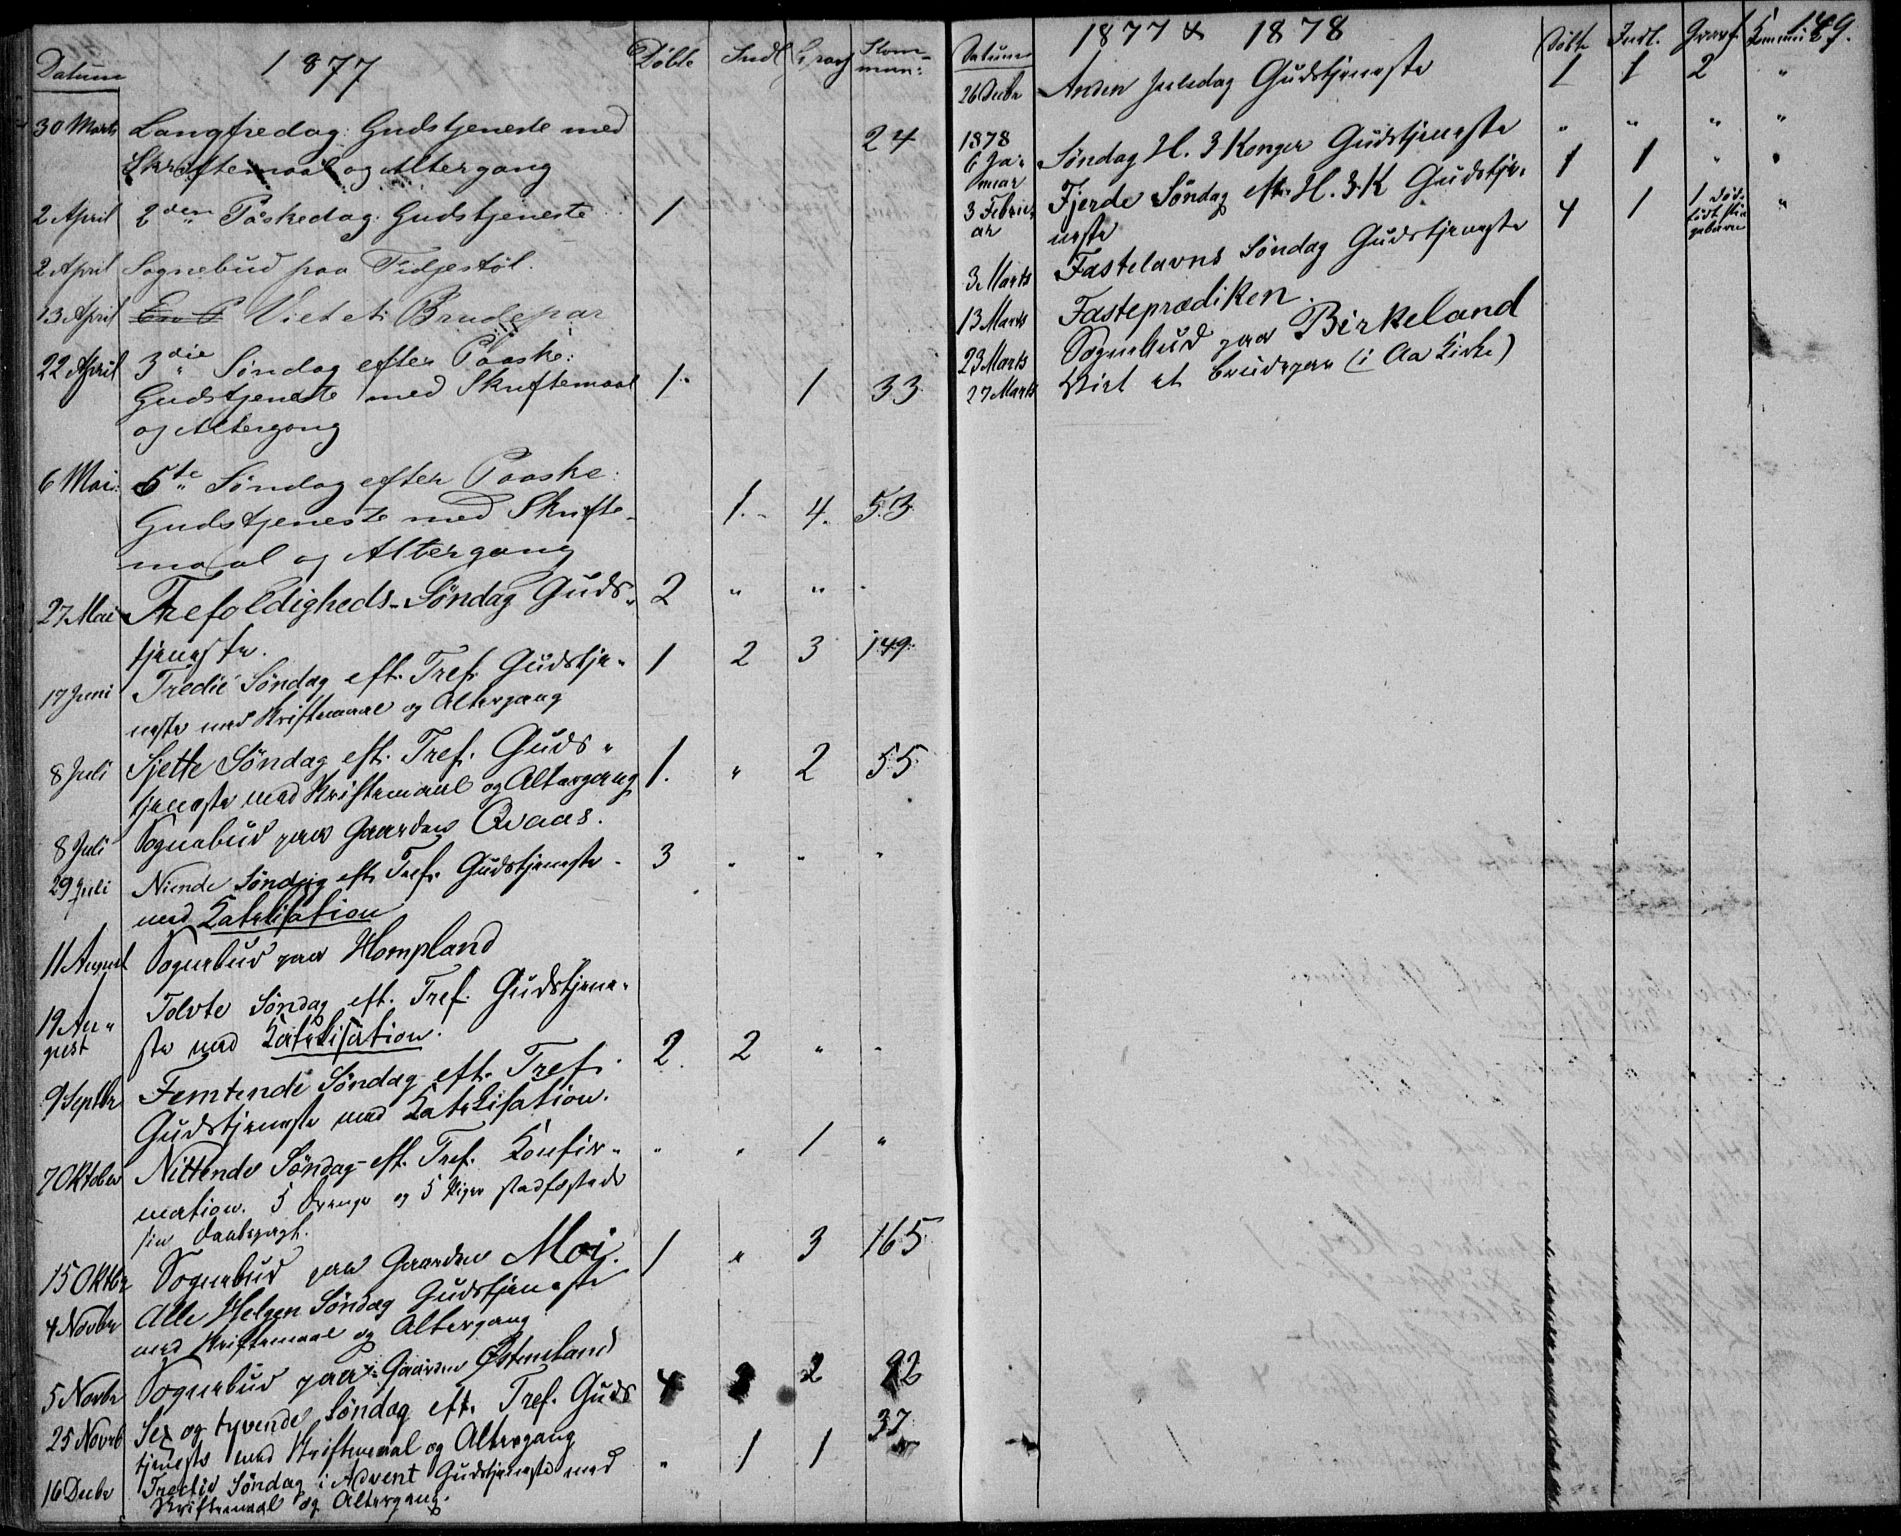 Datum 1877 Døbte Indl Grav Kom-
mun:
30 Marts Langfredag: Gudstjeneste med 24
Skriftemaal og Altergang
2 April 2den Påskedag: Gudstjeneste 1
2 April Sognebud paa Fidjestøl.
23 April Viet et Brudepar
22 April 3die Søndag efter Paaske:
Gudstjeneste med Skriftemaal 1. 1 33
og Altergang
6 Mai: 5te Søndag efter Paaske:
Gudstjeneste med Skrifte- 1.- 4. 53
maal og Altergang
27 Mai Trefoldigheds-Søndag Guds- 2 " " "
tjeneste.
17 Juni Tredie Søndag eft. Tref. Gudstje- 1 2 3 149
neste med Skriftemaal og Altergang
8 Juli Sjette Søndag eft. Tref. Guds- 1. " 2 55
tjeneste med Skriftemaal og Altergang
8 Juli Sognebud paa Gaarden Qvaas.
29 Juli Niende Søndag eft. Tref. Gudstjeneste 3 " " "
med Katekisation
11 August Sognebud paa Hompland
19 Au- Tolvte Søndag eft. Tref. Gudstjene-
gust ste med Katekisation. 2 2 " "
9 Septbr Femtende Søndag eft. Tref.
Gudstjeneste med Katekisation.
7 Oktober Nittende Søndag eft. Tref. Konfir- " " 1 "
mation. 5 Drenge og 5 Piger stadfæstede
sin Daabspagt.
15 Oktbr Sognebud paa Gaarden Moi. 1 " 3 165
4 Novbr Alle Helgen Søndag Gudstjeneste
med Skriftemaal og Altergang
5 Novbr Sognebud paa Gaarden Østenland
25 Novb Sex og tyvende Søndag eft. Tref. Guds 4 2
tjeneste med Skriftemaal og Altergang 37
16 Decbr Tredie Søndag i Advent Gudstjeneste med " 1 1
Skriftemaal og Altergang.
Datum 1877 & 1878 Døbte Indl. Grav. Kommuni 149.
26 Decbr Anden Juledag Gudstjeneste 1 1 2 "
1878
6 Ja- Søndag H. 3 Konger Gudstjeneste " " " "
nuar
3 Februar Fjerde Søndag eft. H. 3. K Gudstje- 1 1 " "
neste
3 Marts Fastelavns Søndag Gudstjeneste 4 1 1 død- "
født
13 Marts Fasteprædiken.
23 Marts Sognebud paa Birkeland
27 Marts Viet et Brudepar (i Aa Kirke)